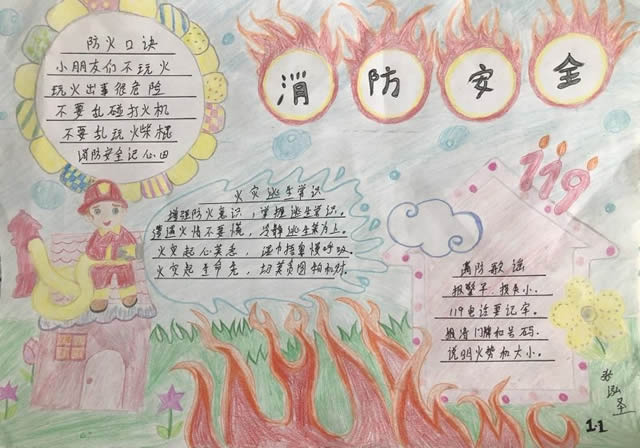 消防安全
防火口诀
小朋友们不玩火
玩火出事很危险
不要乱碰打火机
不要乱玩火柴棍
消防安全记心田
火灾逃生常识
增强防火意识,掌握逃生常识。
遭遇火情不要慌,冷静逃生为上。
火灾起心莫急,湿巾捂鼻慢呼吸。
火灾起,
119
消防歌谣
报警早,损失小,
119电话要记牢。
报清门牌和号码,
说明火势和大小。
1.1